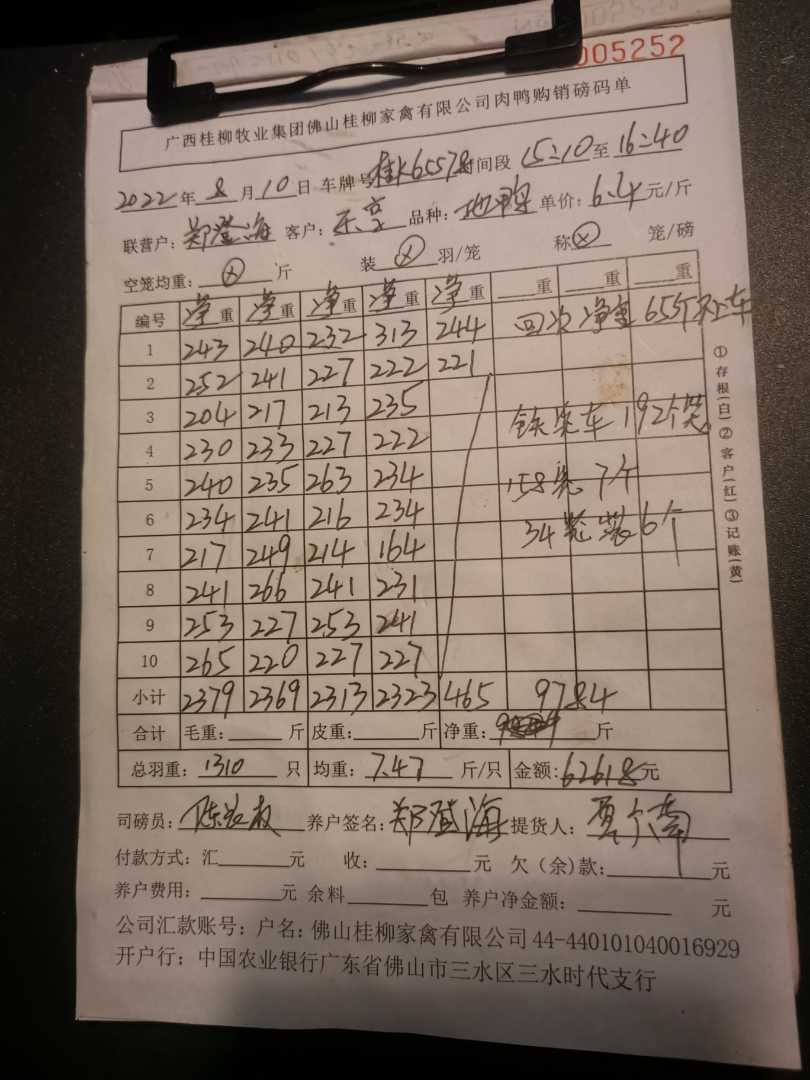 005252
广西桂柳牧业集团佛山桂柳家禽有限公司肉鸭购销磅码单
2022年8月10日 车牌号桂K65578时间段 15:10至16:40
联营户:郑澄海 客户: 品种: 单价:6.4元/斤
空笼均重:⊗斤 装⊗羽/笼 称⊗笼/磅
编号 净重 净重 净重 净重 净重 重 重 重
1 243 240 232 313 244 四次净重65个
2 252 241 227 222 221
3 204 217 213 235
4 230 233 227 222 车192个笼
5 240 235 263 234 158笼7个
6 234 241 216 234 34笼装6个
7 217 249 214 164
8 241 266 241 231
9 253 227 253 241
10 265 220 227 227
小计 2379 2369 2313 2323 465 9784
合计 毛重: 斤 皮重: 斤 净重: 斤
总羽重:1310只 均重:7.47斤/只 金额:62618元
司磅员: 养户签名:郑澄海 提货人:
付款方式:汇 元 收: 元 欠(余)款: 元
养户费用: 元 余料 包 养户净金额: 元
公司汇款账号:户名:佛山桂柳家禽有限公司44-440101040016929
开户行:中国农业银行广东省佛山市三水区三水时代支行
①存根(白)②客户(红)③记账(黄)